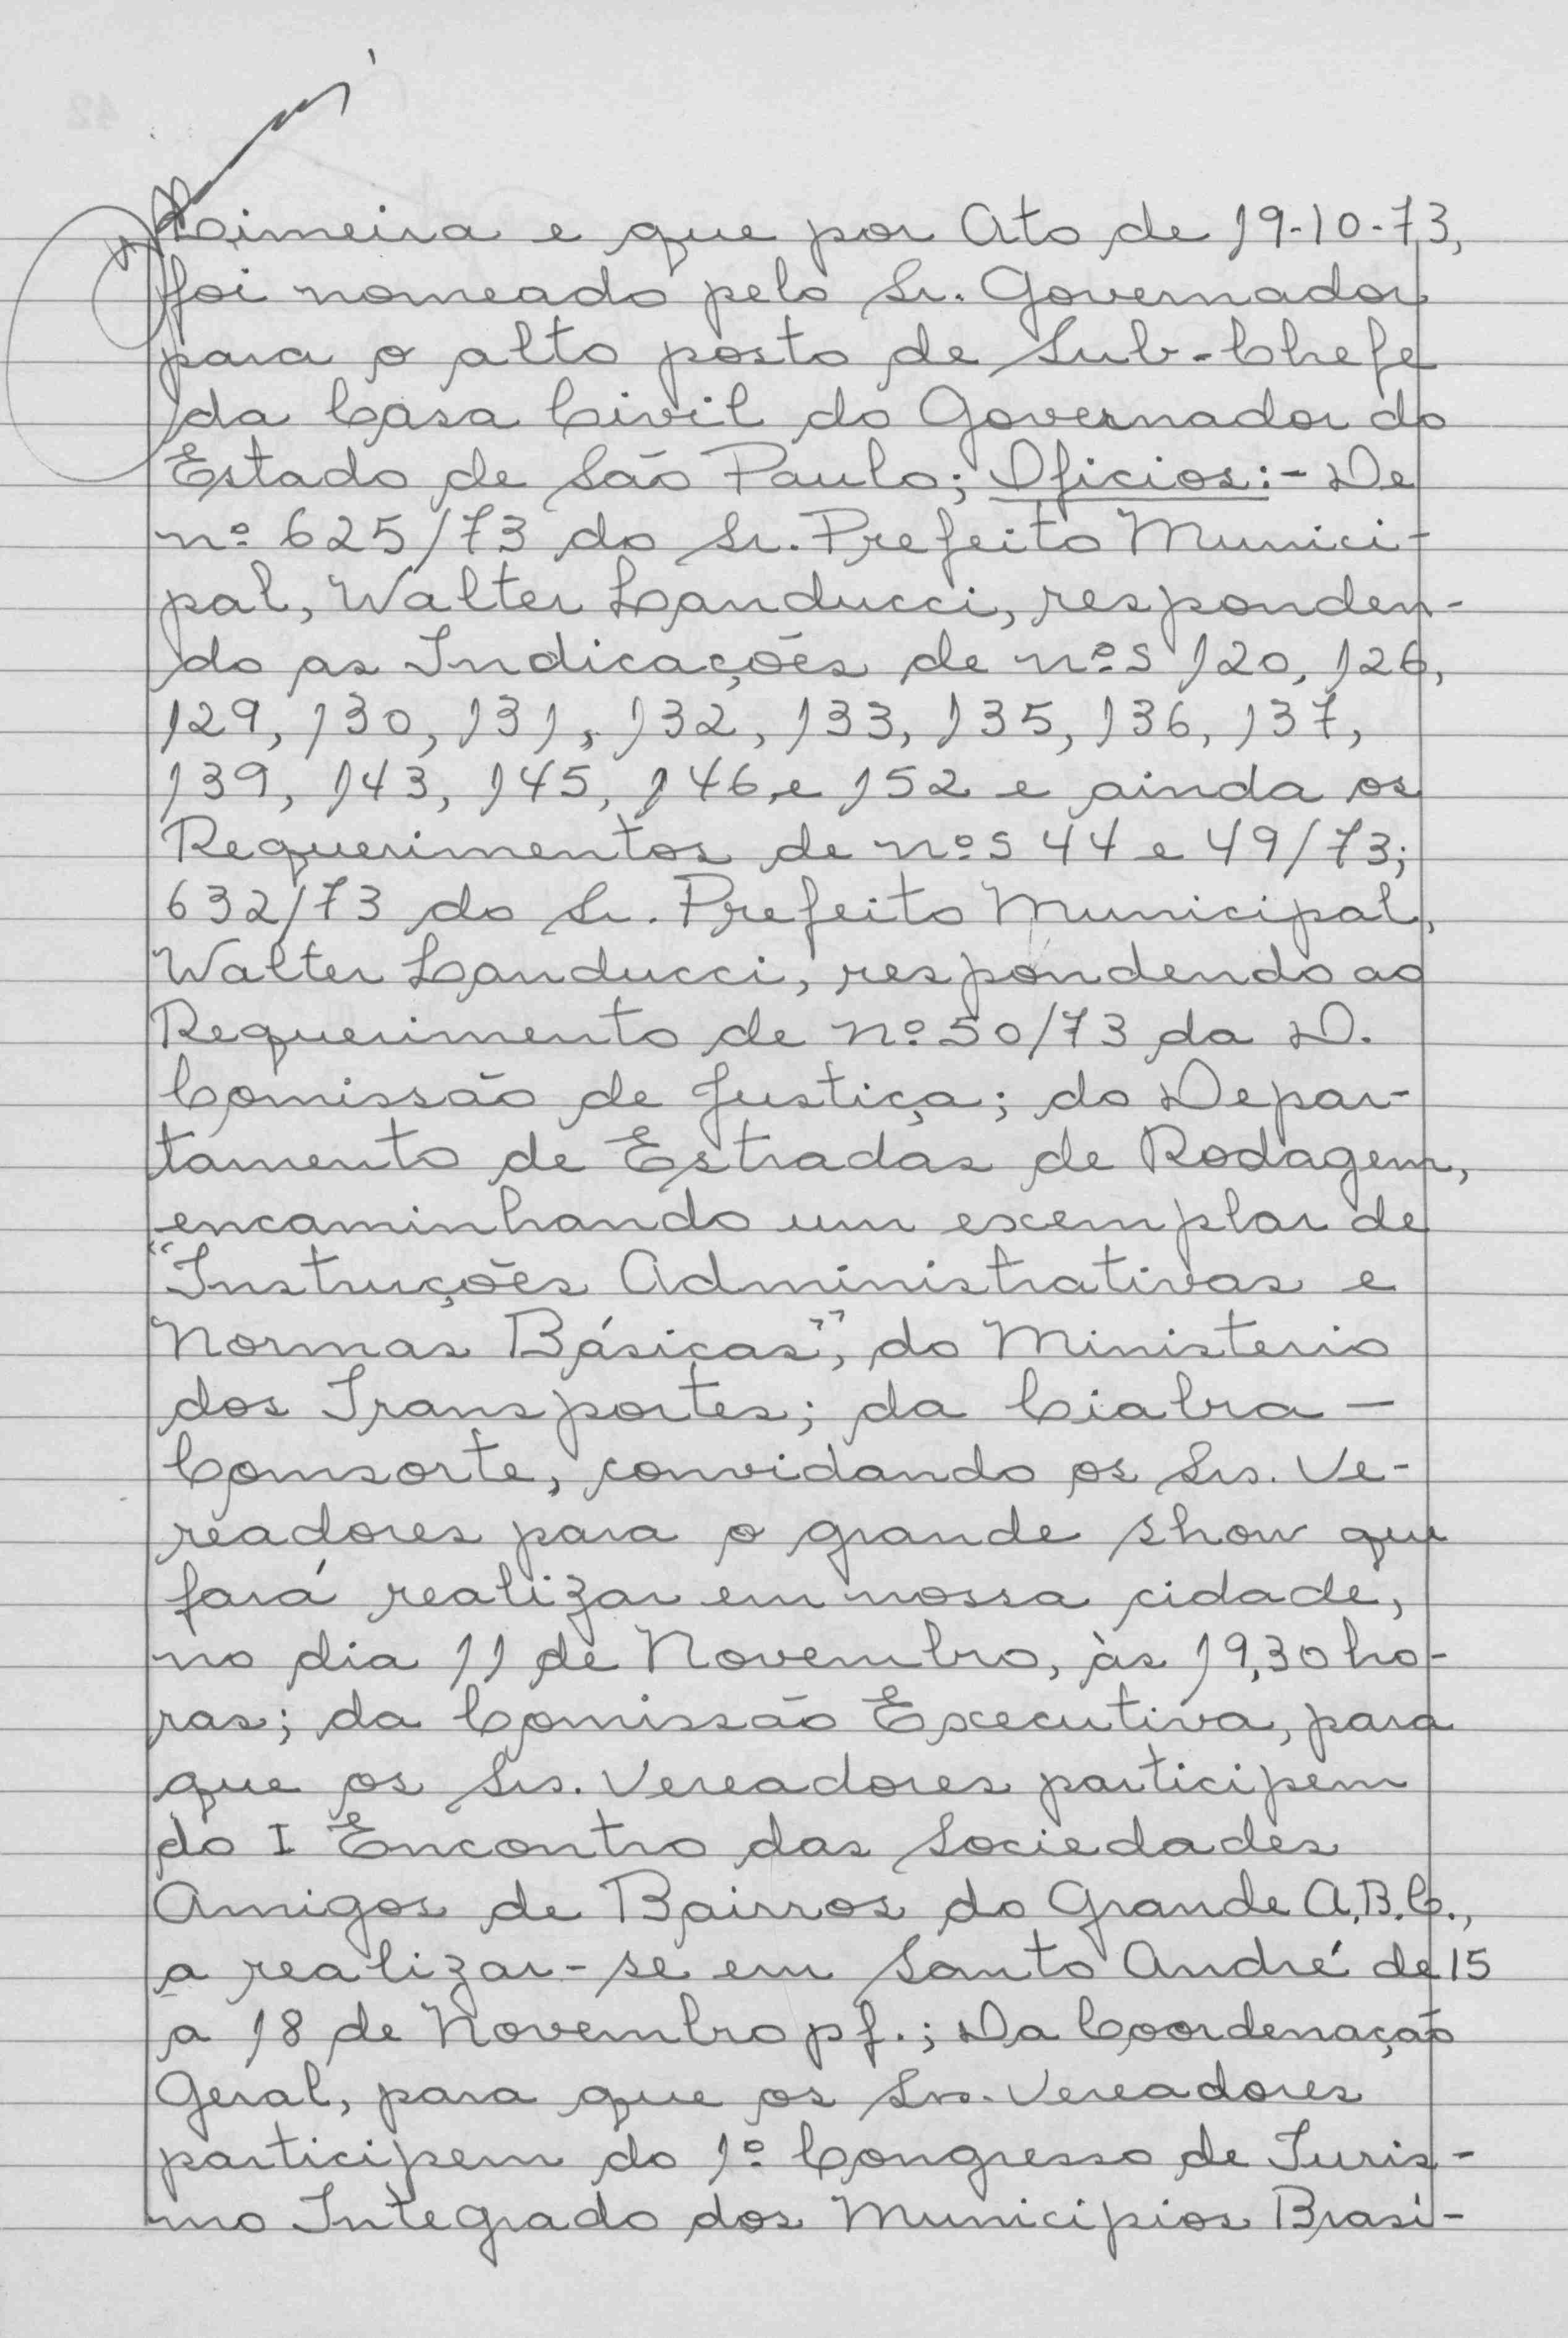 Limeira e que por Ato de 19-10-73,
foi nomeado pelo Sr. Governador
para o alto posto de Sub-Chefe
da Casa Civil do Governador do
Estado de São Paulo; Oficios:- De
nº 625/73 do Sr. Prefeito Munici-
pal, Walter Landucci, responden-
do as Indicações de nºs 120, 126,
129, 130, 131, 132, 133, 135, 136, 137,
139, 143, 145, 146, e 152 e ainda os
Requerimentos de nºs 44 e 49/73;
632/73 do Sr. Prefeito Municipal,
Walter Landucci, respondendo ao
Requerimento de nº 50/73 da D.
Comissão de Justiça; do Depar-
tamento de Estradas de Rodagem,
encaminhando um exemplar de
"Instruções Administrativas e
Normas Básicas", do Ministerio
dos Transportes; da Ciabra -
Comsorte, convidando os Srs. Ve-
readores para o grande show que
fará realizar em nossa cidade,
no dia 11 de Novembro, às 19,30 ho-
ras; da Comissão Executiva, para
que os Srs. Vereadores participem
do I Encontro das Sociedades
Amigos de Bairros do Grande A.B.C.,
a realizar-se em Santo André de 15
a 18 de Novembro pf.; Da Coordenação
Geral, para que os Srs. Vereadores
participem do 1º Congresso de Turis-
mo Integrado dos Municipios Brasi-